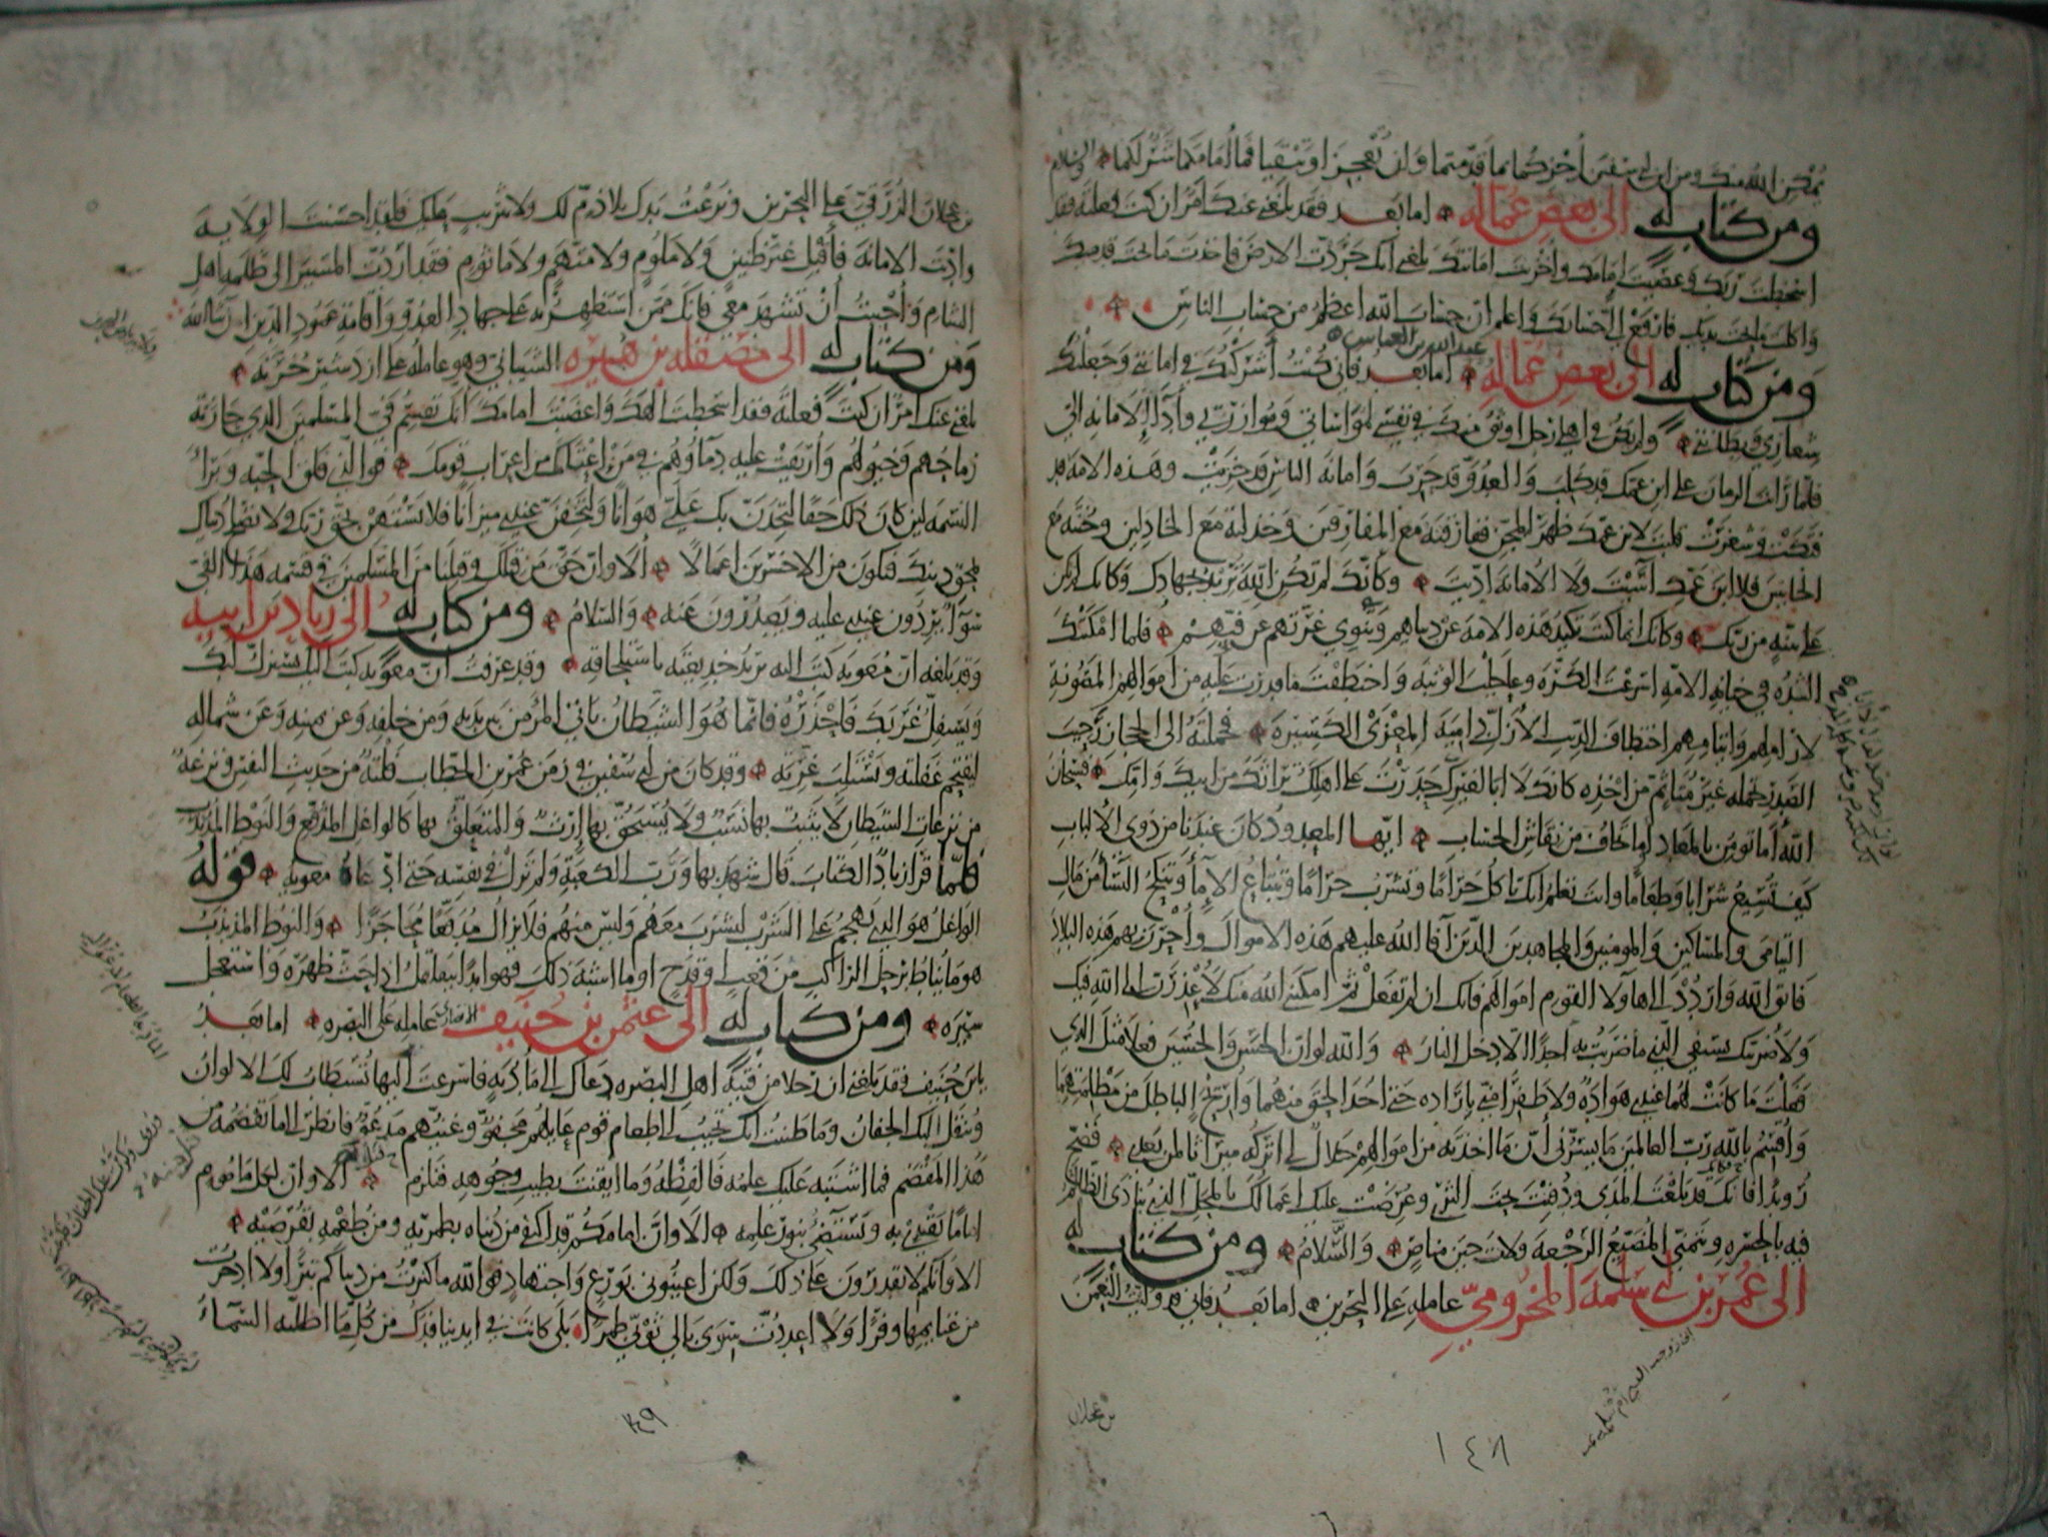 يمكن الله منك ومن ابن ابي سفين أجزكما بما قدمتما وان تعجزا وتبقيا فما أمامكما شر لكما والسلم
ومن كتاب له الى بعض عماله اما بعد فقد بلغني عنك امر ان كنت فعلته فقد
اسخطت ربك وعصيت امامك وأخزيت امانتك بلغني انك جردت الارض فاخذت ما تحت قدميك
واكلت ما تحت يديك فارفع الي حسابك واعلم ان حساب الله اعظم من حساب الناس
عبد الله بن العباس
ومن كتاب له الى بعض عماله اما بعد فاني كنت أشركتك في امانتي وجعلتك
شعاري وبطانتي ولم يكن في اهلي رجل اوثق منك في نفسي لمواساتي وموازرتي وأداء الامانه الي
فلما رأيت الزمان على ابن عمك قد كلب والعدو قد حرب وامانة الناس قد خزيت وهذه الامة قد
فنكت وشغرت قلبت لابن عمك ظهر المجن ففارقته مع المفارقين وخذلته مع الخاذلين وخنته مع
الخاينين فلا ابن عمك آسيت ولا الامانة اديت وكأنك لم تكن الله تريد بجهادك وكانك لم تكن
على بينه من ربك وكانك انما كنت تكيد هذه الامة عن دنياهم وتنوي غرتهم عن فيئهم فلما امكنتك
الشده في خيانه الامه اسرعت الكره وعاجلت الوثبه واختطفت ما قدرت عليه من اموالهم المصونة
لاراملهم وايتامهم اختطاف الذيب الازل دامية المعزى الكسيره فحملته الى الحجاز رحيب
الصدر بحمله غير متاثم من اخذه كانك لا ابا لغيرك حدرت على اهلك تراثك من ابيك وامك فسبحان
الله أما تومن بالمعاد أوما تخاف من نقاش الحساب ايها المعدود كان عندنا من ذوي الالباب
كيف تسيغ شرابا وطعاما وانت تعلم انك تاكل حراما وتشرب حراما وتبتاع الإماء وتنكح النساء من مال
اليتامى والمساكين والمومنين والمجاهدين الذين أفاء الله عليهم هذه الاموال وأحرز بهم هذه البلاد
فاتق الله واردد الى هاولاء القوم اموالهم فانك ان لم تفعل ثم امكنني الله منك لأعذرن الى الله فيك
ولأضربنك بسيفي الذي ما ضربت به احدا الا دخل النار والله لو ان الحسن والحسين فعلا مثل الذي
فعلت ما كانت لهما عندي هواده ولا ظفرا مني باراده حتى اخذ الحق منهما وازيح الباطل من مظلمتهما
وأقسم بالله رب العالمين ما يسرني أن ما اخذته من اموالهم حلال لي اتركه ميراثا لمن بعدي فضح
رويدا فكانك قد بلغت المدى ودفنت تحت الثرى وعرضت عليك اعمالك بالمحل الذي ينادى الظالم
فيه بالحسره ويتمنى المضيع الرجعة ولات حين مناص والسلام ومن كتاب له
الى عمر بن ابي سلمة المخزومي عامله على البحرين اما بعد فاني وليت النعمن
بن عجلان
١٤٨
بن عجلان الزرقي على البحرين ونزعت يدك بلا ذم لك ولا تثريب عليك فلقد احسنت الولايه
واديت الامانة فأقبل غير ظنين ولا ملوم ولا متهم ولا ماثوم فقد اردت المسير الى ظلمه اهل
الشام وأحببت أن تشهد معي فانك ممن استظهر به على جهاد العدو واقامة عمود الدين ان شاالله
ومن كتاب له الى مصقله بن هبيره الشيباني وهو عامله على اردشير خره
بلغني عنك امر ان كنت فعلته فقد اسخطت الهك واغضبت امامك انك تقسم فيء المسلمين الذي حازته
رماحهم وخيولهم وأريقت عليه دماوهم في من اعتامك من اعراب قومك فوالذي فلق الحبه وبرأ
النسمه لين كان ذلك حقا لتجدن بك علي هوانا ولتخفن عندي ميزانا فلا تستهن بحق ربك ولا تصلح دنياك
بمحق دينك فتكون من الاخسرين اعمالا ألا وان حق من قبلك وقبلنا من المسلمين في قسمه هذا الفيء
سوآ يردون عندي عليه ويصدرون عنه والسلام ومن كتاب له الى زياد بن ابيه
وقد بلغه ان معويه كتب اليه يريد خديعته باستلحاقه وقد عرفت ان معويه كتب اليك يستزل لبك
ويستفل غربك فاحذره فانما هو الشيطان ياتي المرء من بين يديه ومن خلفه وعن يمينه وعن شماله
ليقتحم غفلته ويستلب غرته وقد كان من ابي سفين في زمن عمر بن الخطاب فلتة من حديث النفس ونزغة
من نزغات الشيطان لا يثبت بها نسب ولا يستحق بها إرث والمتعلق بها كالواغل المدفع والنوط المذبذب
فلما قرأ زياد الكتاب قال شهد بها ورب الكعبة ولم تزل في نفسه حتى ادعاه معويه قوله
الواغل هو الذي يهجم على الشرب ليشرب معهم وليس منهم فلا يزال مدفعا محاجزا والنوط المذبذب
هو ما يناط برحل الراكب من قعب او قدح او ما اشبه ذلك فهو ابدا يتقلقل اذا حث ظهره واستعجل
سيره ومن كتاب له الى عثمن بن حنيف الانصاري عامله على البصره اما بعد
يابن حنيف فقد بلغني ان رجلا من فتية اهل البصره دعاك الى مأدبه فاسرعت اليها تستطاب لك الالوان
وتنقل اليك الجفان وما ظننت انك تجيب الى طعام قوم عايلهم مجفو وغنيهم مدعو فانظر الى ما تقضمه من
هذا المقضم فما اشتبه عليك علمه فالفظه وما ايقنت بطيب وجوهه فنل منه الا وان لكل ماموم
اماما يقتدي به ويستضيء بنور علمه الا وان امامكم قد اكتفى من دنياه بطمريه ومن طعمه بقرصيه
الا وانكم لا تقدرون على ذلك ولكن اعينوني بورع واجتهاد فوالله ما كنزت من دنياكم تبرا ولا ادخرت
من غنايمها وفرا ولا اعددت سوى بالي ثوبي طمرا بلى كانت في ايدينا فدك من كل ما اظلته السماء
١٤٩